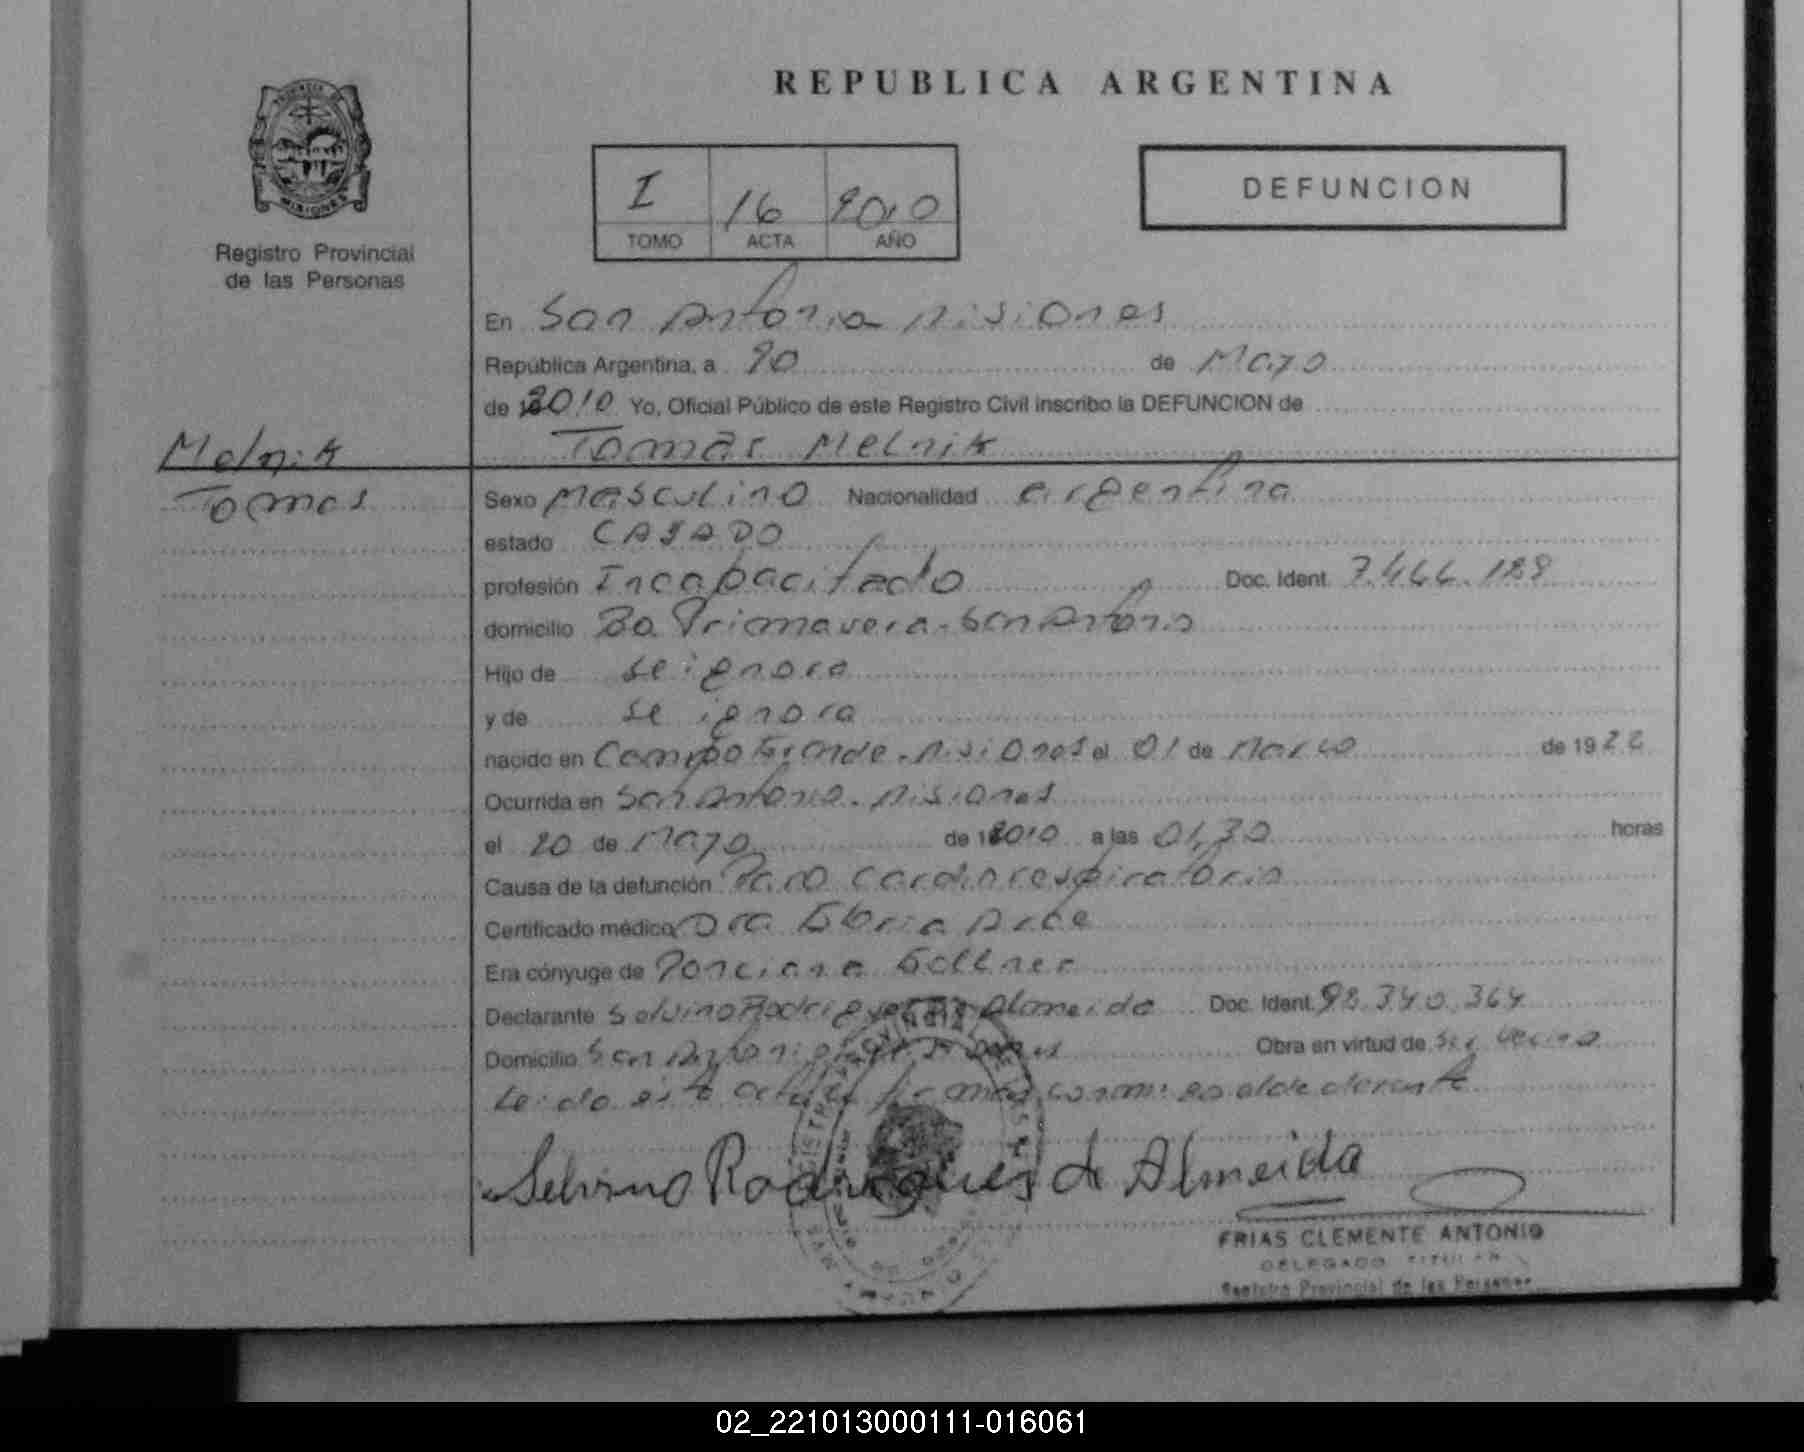 REPUBLICA ARGENTINA
I 16 2010
TOMO ACTA AÑO
DEFUNCION
MISIONES
Registro Provincial
de las Personas
En San Antonio Misiones
República Argentina, a 20 de Mayo
de 2010 Yo, Oficial Público de este Registro Civil inscribo la DEFUNCION de
Tomas Melnik
Melnik
Tomas
Sexo Masculino Nacionalidad argentina
estado CASADO
profesión Incapacitado Doc. Ident.
domicilio Bo Primavera - San Antonio
Hijo de se ignora
y de se ignora
nacido en Campo Grande - Misiones el 01 de Marzo de 19
Ocurrida en San Antonio - Misiones
el 20 de Mayo de 2010 a las 01,30 horas
Causa de la defunción Paro Cardiorespiratorio
Certificado médico Dra Gloria Arce
Era cónyuge de Ponciana
Declarante Selvino Rodrigues de Almeida Doc. Ident. 98.340.364
Domicilio San Antonio Misiones Obra en virtud de ser vecino
Leido esta acta la firma conmigo el declarante
Selvino Rodrigues de Almeida
FRIAS CLEMENTE ANTONIO
DELEGADO TITULAR
Registro Provincial de las Personas
02_221013000111-016061